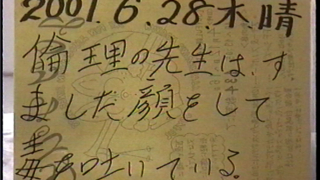 2001.6.28.木.晴
倫理の先生は、す
ました顔をして
毒を吐いている。